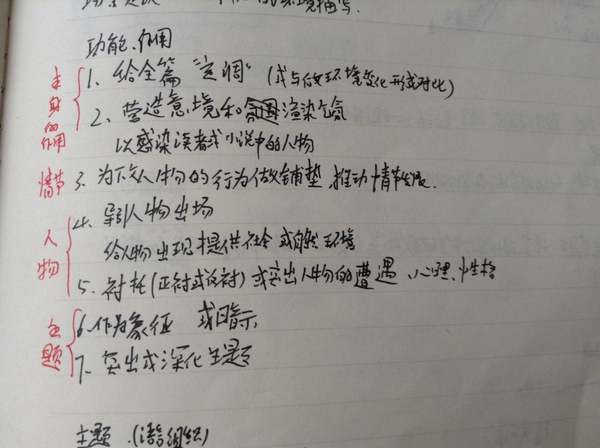 环境描写.
功能、作用
主身的作用
1、给全篇“定调”（或与后文环境变化形成对比）
2、营造意境和氛围渲染气氛
以感染读者或小说中的人物
情节
3、为下文人物的行为做铺垫，推动情节发展.
人物
4、引人物出场
给人物出现提供社会或自然环境
5、衬托（正衬或反衬）或突出人物的遭遇、心理、性格
主题
6、作为象征 或暗示
7、突出或深化主题
主题.（组织）